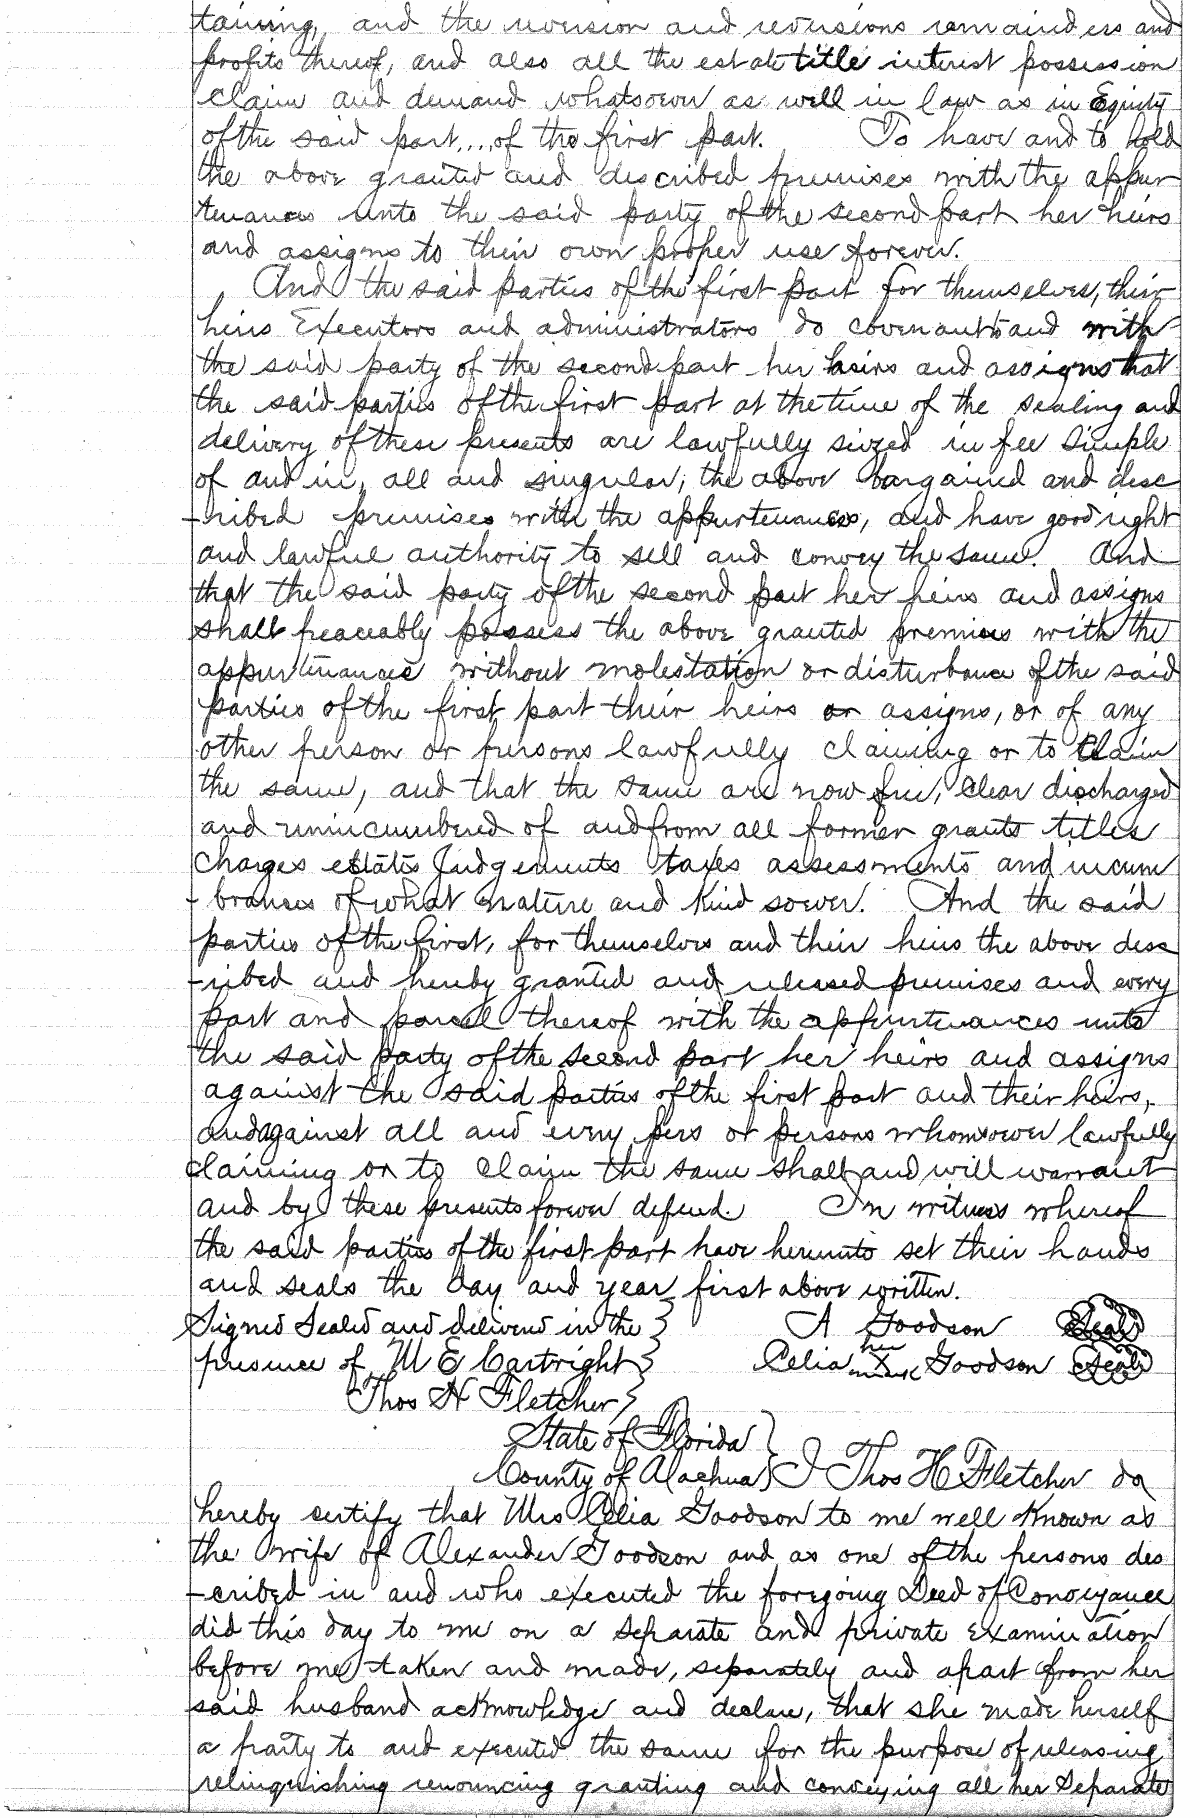 taining, and the reversion and reversions remainders and
profits thereof, and also all the estate title interest possession
claim and demand whatsoever as well in law as in Equity
of the said part....of the first part. To have and to hold
the above granted and described premises with the appur
tenances unto the said party of the second part her heirs
and assigns to their own proper use forever.
And the said parties of the first part for themselves, their
heirs Executors and administrators do covenant to and with
the said party of the second part her heirs and assigns that
the said parties of the first part at the time of the sealing and
delivery of these presents are lawfully seized in fee Simple
of and in, all and singular, the above bargained and desc
-ribed premises with the appurtenances, and have good right
and lawful authority to sell and convey the same. And
that the said party of the second part her heirs and assigns
shall peaceably possess the above granted premises with the
appurtenances without molestation or disturbance of the said
parties of the first part their heirs or assigns, or of any
other person or persons lawfully claiming or to Claim
the same, and that the same are now free, Clear discharged
and unincumbered of and from all former grants titles
charges estates Judgements taxes assessments and incum
-brances of what nature and Kind soever. And the said
parties of the first, for themselves and their heirs the above desc
-ribed and hereby granted and released premises and every
part and parcel thereof with the appurtenances unto
the said party of the second part her heirs and assigns
against the said parties of the first part and their heirs,
and against all and every pers or persons whomsoever lawfully
claiming or to Claim the same shall and will warrant
and by these presents forever defend. In witness whereof
the said parties of the first part have hereunto set their hands
and seals the day and year first above written.
Signed Sealed and delivered in the } A Goodson Seal
presence of M E Cartright } Celia her X mark Goodson Seal
Thos H Fletcher }
State of Florida }
County of Alachua } I Thos H Fletcher do
hereby certify that Mrs Celia Goodson to me well Known as
the wife of Alexander Goodson and as one of the persons des
-cribed in and who executed the foregoing Deed of Conveyance
did this day to me on a separate and private examination
before me taken and made, separately and apart from her
said husband acknowledge and declare, that she made herself
a party to and executed the same for the purpose of releasing
relinquishing renouncing granting and conveying all her Separate